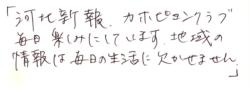 「河北新報、カホピョンクラブ
毎日楽しみにしています。地域の
情報は毎日の生活に欠かせません。
」